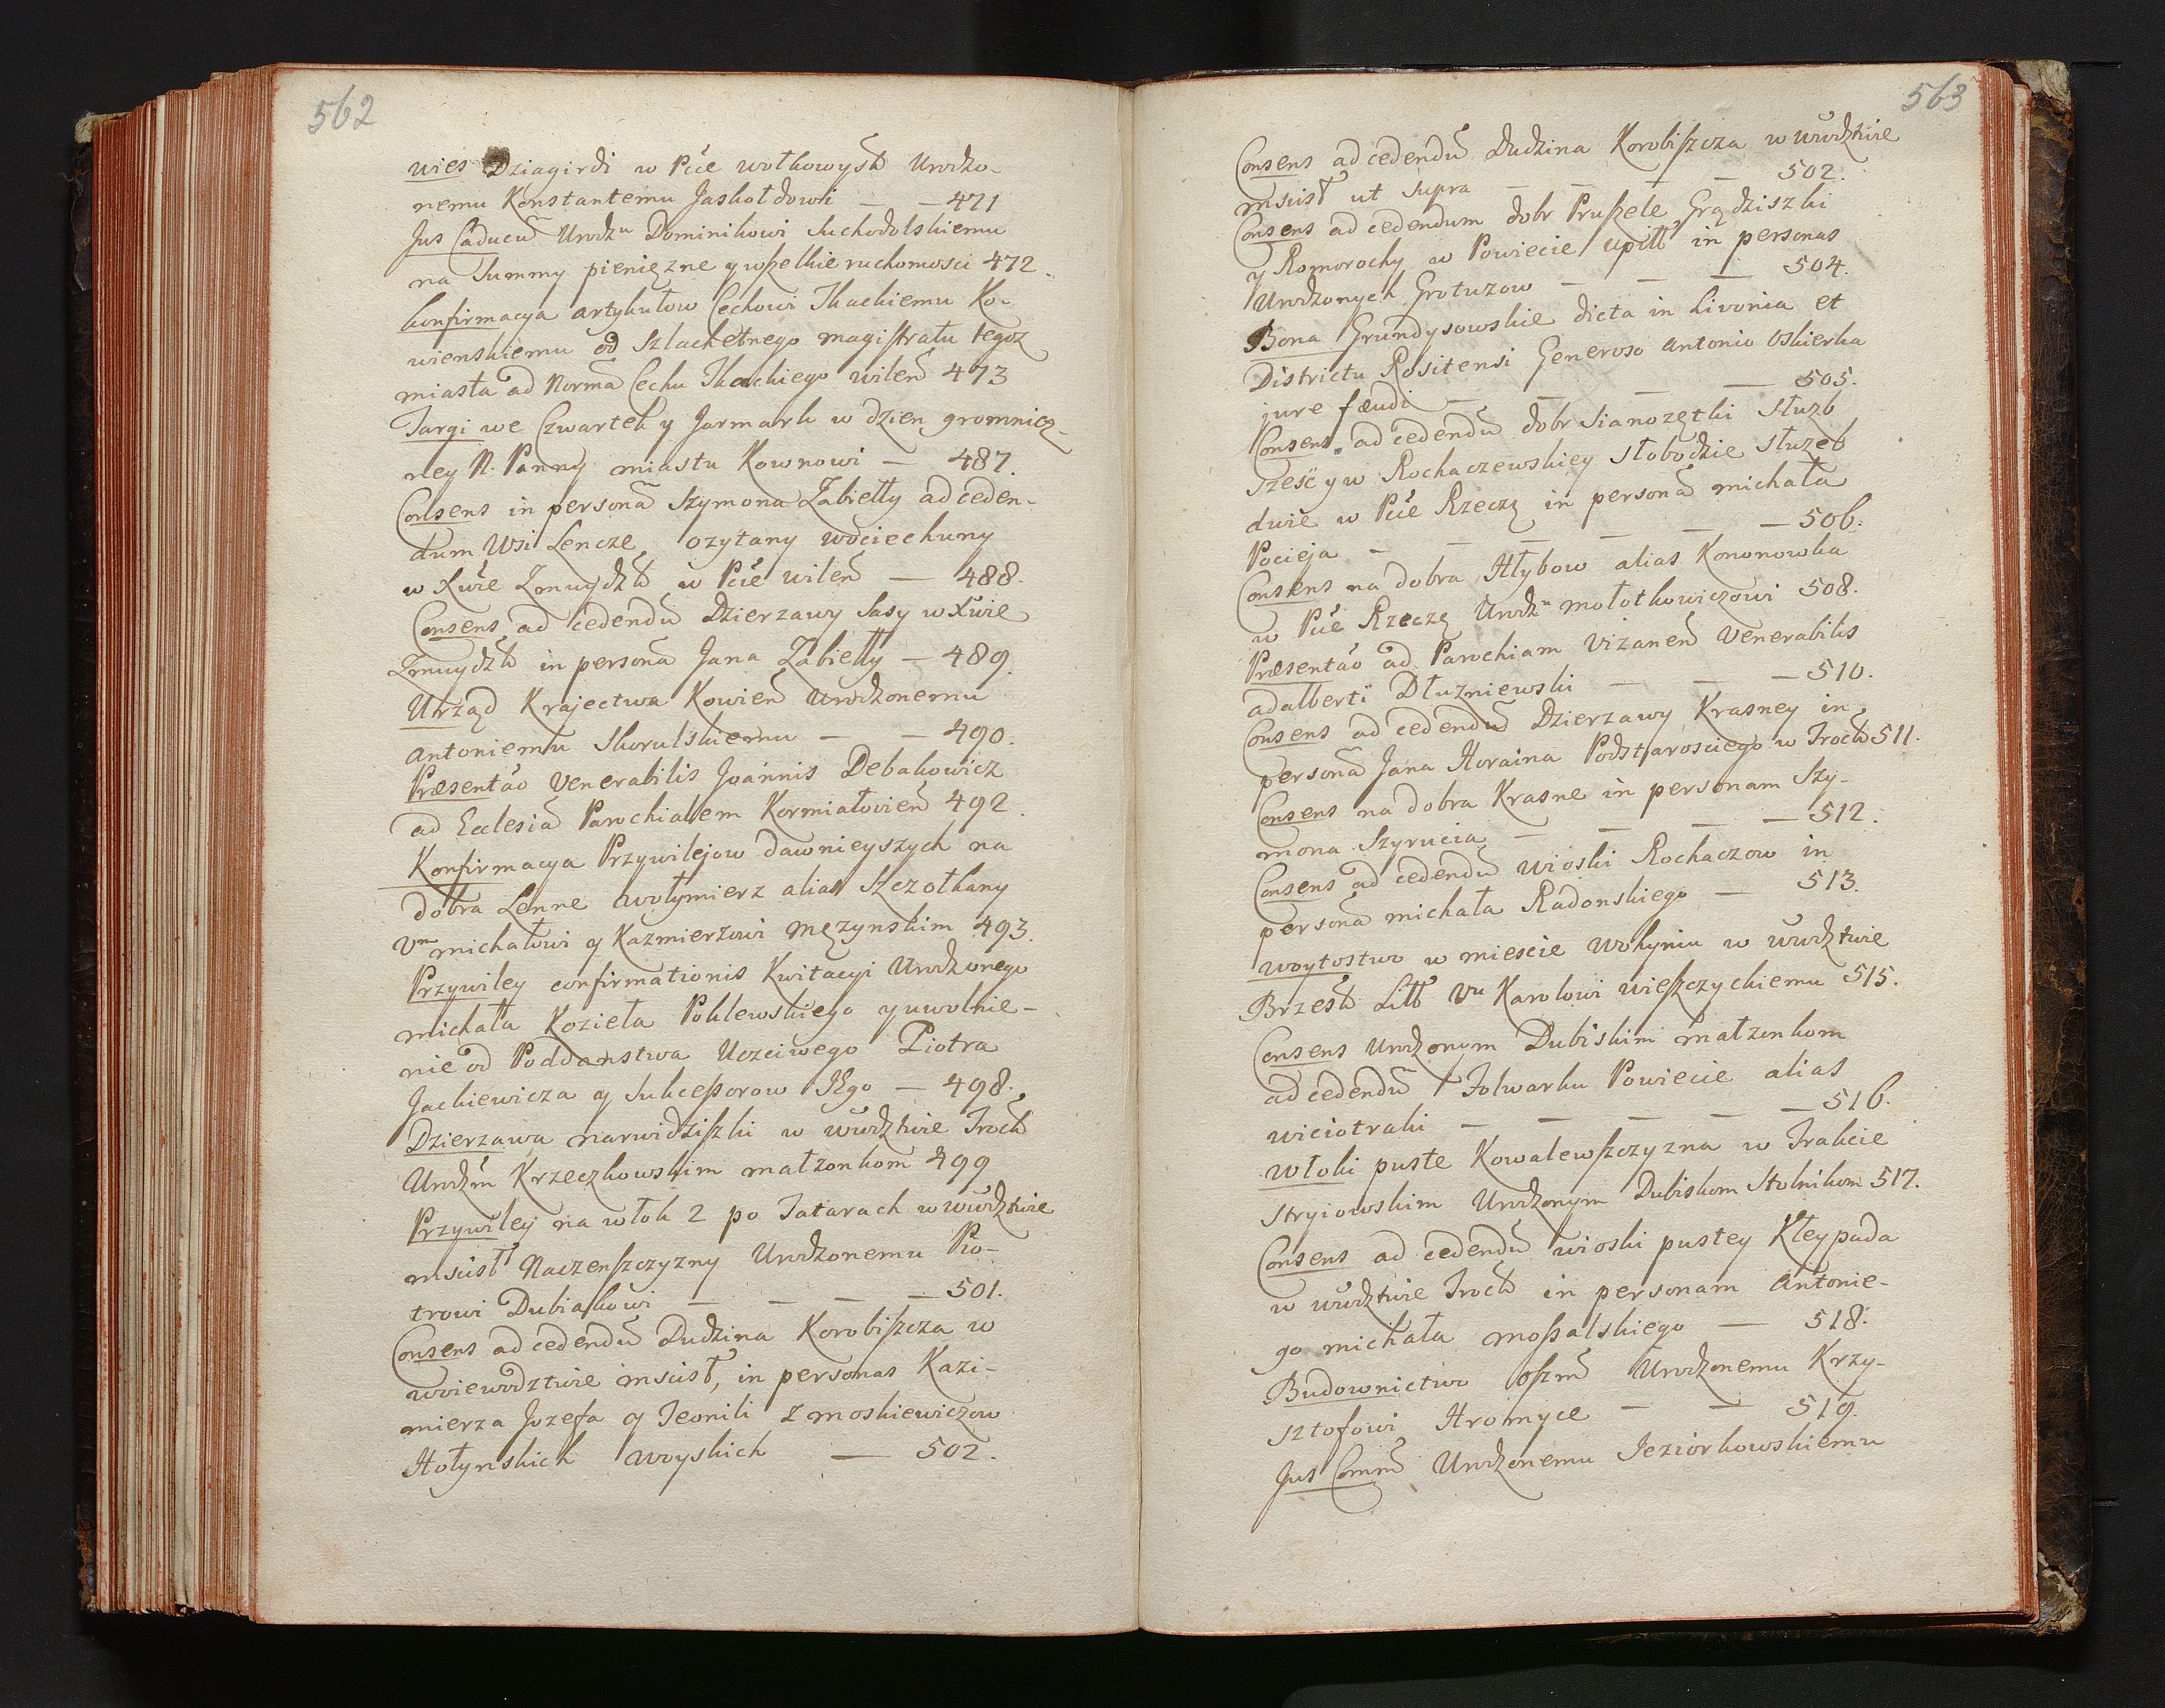 562
wies Dziagirdi w Pcie wołkowysk Urodzo-
nemu Konstantemu Jaskołdowi — — 471
Jus Caducũ Urodzu Dominikowi Suchodolskiemu
na Summy pienięzne y wszelkie ruchomosci 472.
konfirmacya artykułow Cechowi Tkackiemu Ko-
wienskiemu od Szlachetnego magistratu tegoz
miasta ad Normã Cechu Tkackiego wileñ 473
Targi we Czwartek y Jarmark w dzien gromnicz-
ney N. Panny miastu Kownowi — 487.
Consens in personã Szymona Zabiełły ad ceden-
dum Wsi Lencze, ozytany wociechuny
w Xwie Zmuydzk w Pcie wileñ — 488.
Consens ad cedendũ Dzierzawy Sasy w Xwie
Zmuydzk in personã Jana Zabiełły — 489.
Urząd Krajectwa Kowieñ Urodzonemu
Antoniemu Skorulskiemu — — 490.
Præsentao Venerabilis Joannis Debakowicz
ad Ecclesiã Parochialem Kormiałovieñ 492.
Konfirmacya Przywilejow dawnieyszych na
dobra Lenne wołymierz alias Szczotkany
Um michałowi y Kazmierzowi Męzynskim 493.
Przywiley confirmationis Kwitacyi Urodzonego
michała Kozieła Poklewskiego y uwolnie-
nie od Poddanstwa Uczciwego Piotra
Jackiewicza y Sukcessorow JEgo — 498.
Dzierzawa narwidziszki w wwdztwie Trock
Urodzm Krzeczkowskim małzonkom 499
Przywiley na włok 2 po Tatarach w wwdztwie
mscisł Naczenszczyzny Urodzonemu Pio-
trowi Dubiakowi — — — — 501.
Consens ad cedendũ Dudzina Korobiszcza w
woiewodztwie mscisł, in personas Kazi-
mierza Jozefa y Teonili z moskiewiczow
Hołynskich woyskich — 502.
563
Consens ad cedendũ Dudzina Korobiszcza w wwdztwie
mscisł ut supra — — — — 502.
Consens ad cedendum dobr Pruszele Grądziszki
y Romorochy w Powiecie upitt in personas
Urodzonych Grotuzow — — — 504.
Bona Grundysowskie dicta in Livonia et
Districtu Rositensi Generoso Antonio Oskierka
jure fæudi — — — — 505.
Consens ad cedendũ dobr Sianozętki Służb
Sześć y w Rochaczewskiey Słobodzie Służeb
dwie w Pcie Rzeczę in personã michała
Pocieja — — — — — 506.
Consens na dobra Hłybow alias Kononowka
w Pcie Rzeczę Urodzu mołotkowiczowi 508.
Præsentao ad Parochiam Vizaneñ Venerabilis
adalberti Dłuzniewski — — — 510.
Consens ad cedendũ Dzierzawy Krasney in
personã Jana Horaina Podstarosciego w Trock 511.
Consens na dobra Krasne in personam Szy-
mona Szyrucia — — — — 512.
Consens ad cedendũ wioski Rochaczow in
personã michała Radonskiego — 513.
woytostwo w miescie Wohyniu w wwdztwie
Brzesk Litt Uu Karolowi wieszczyckiemu 515.
Consens Urodzonym Dubiskim małzonkom
ad cedendũ Folwarku Powiecie alias
wiciotraki — — — — — 516.
Włoki puste Kowalewszczyzna w Trakcie
Stryiowskim Urodzonym Dubiskom Stolnikom 517.
Consens ad cedendũ wioski pustey Kleypada
w wwdztwie Trock in personam Antonie-
go michała mossalskiego — 518.
Budownictwo oszm Urodzonemu Krzy-
sztofowi Hromyce — — 519.
Jus Comm Urodzonemu Jeziorkowskiemu